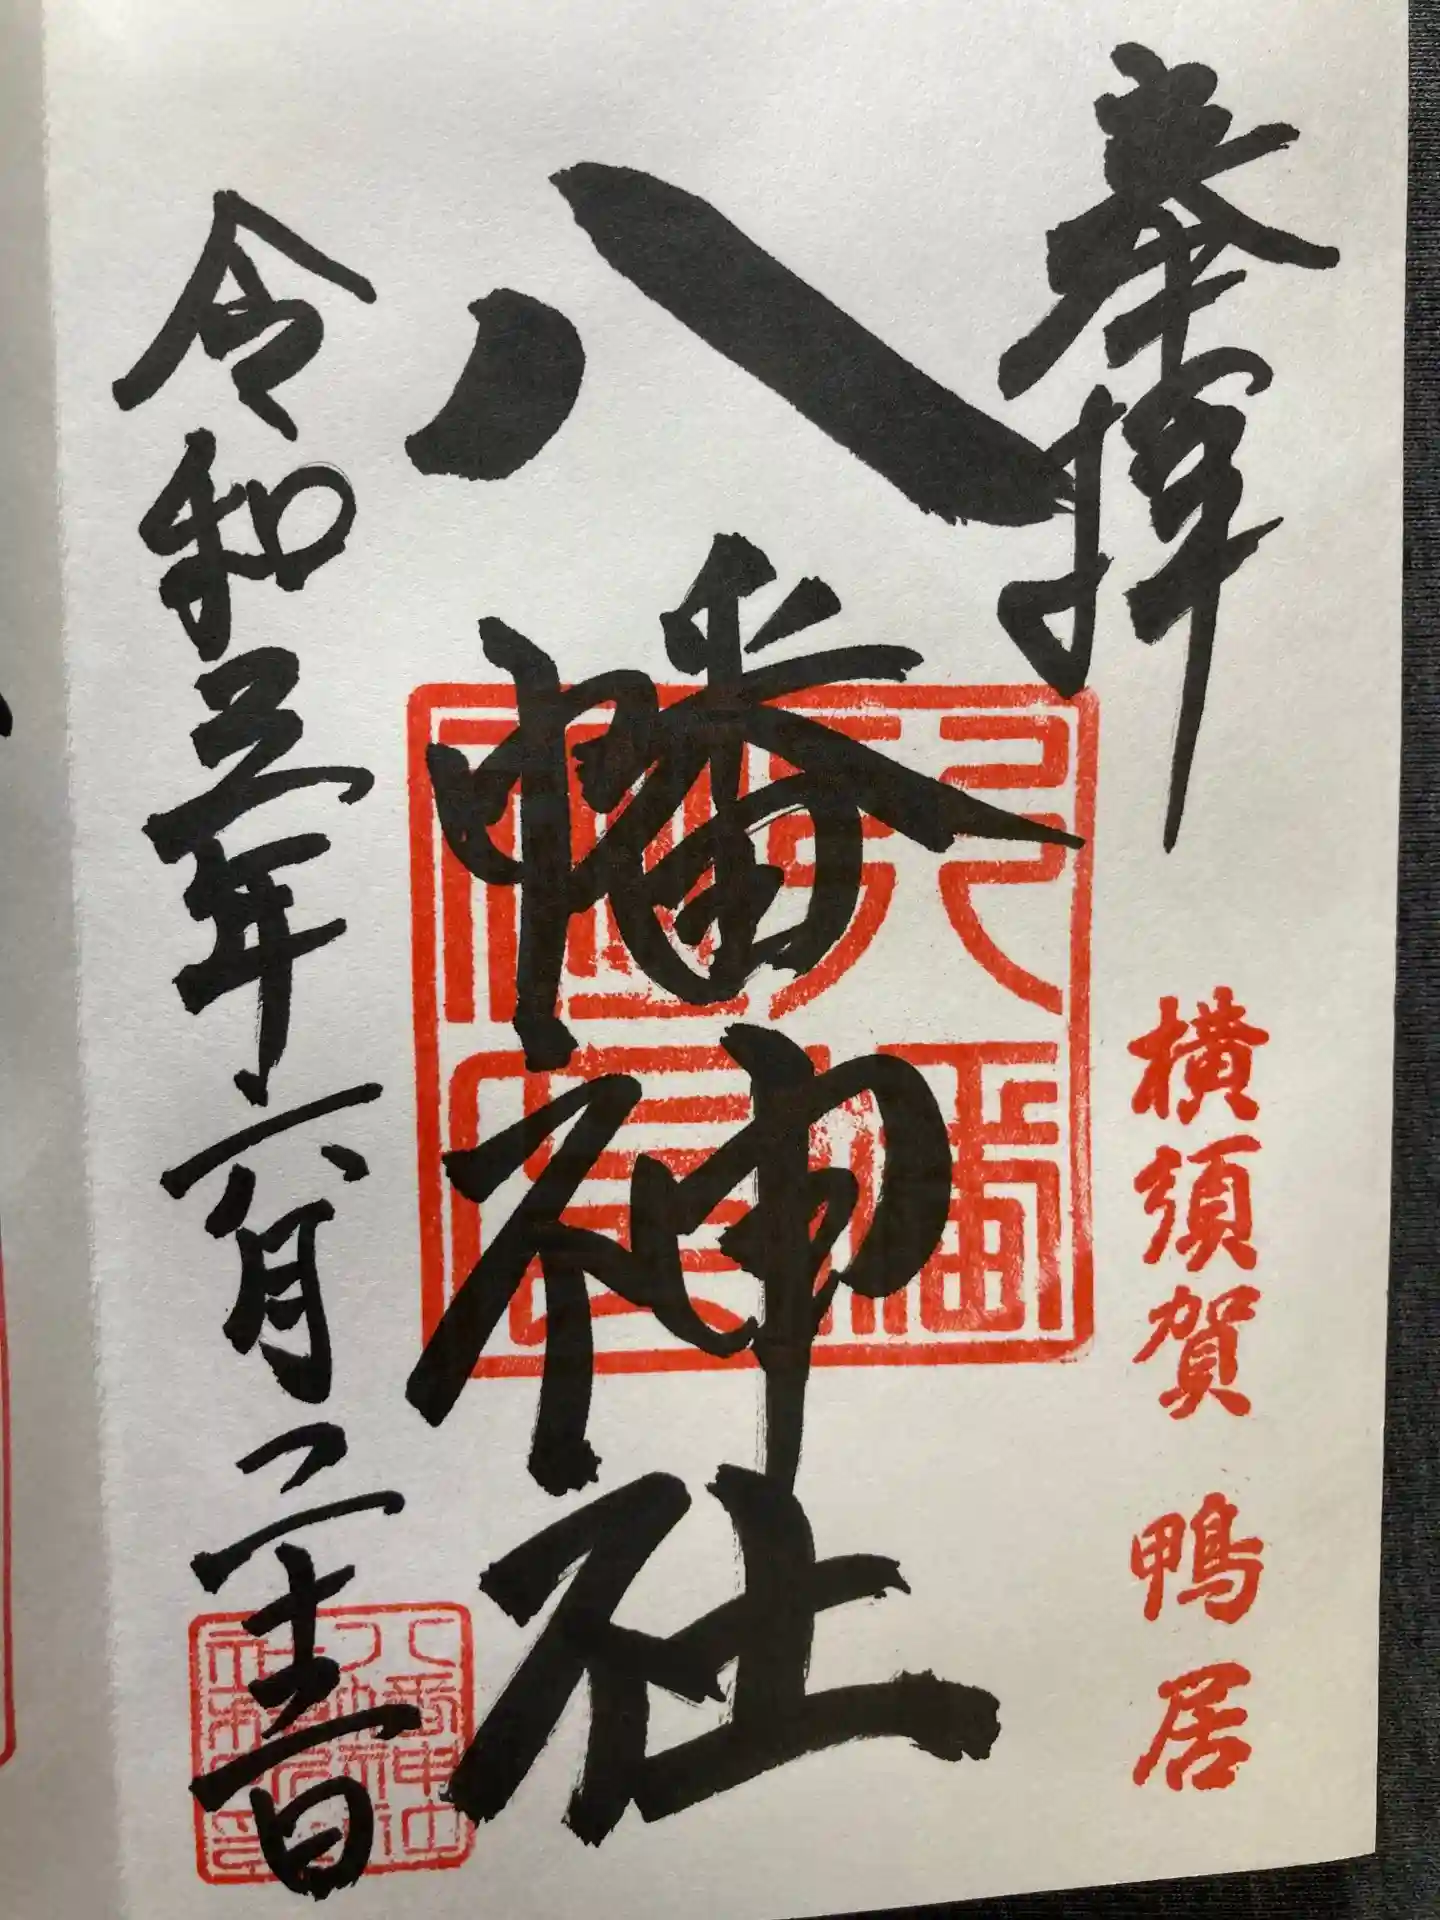 奉拝
横須賀 鴨居
八幡神社
令和三年六月二十三日
八幡神社